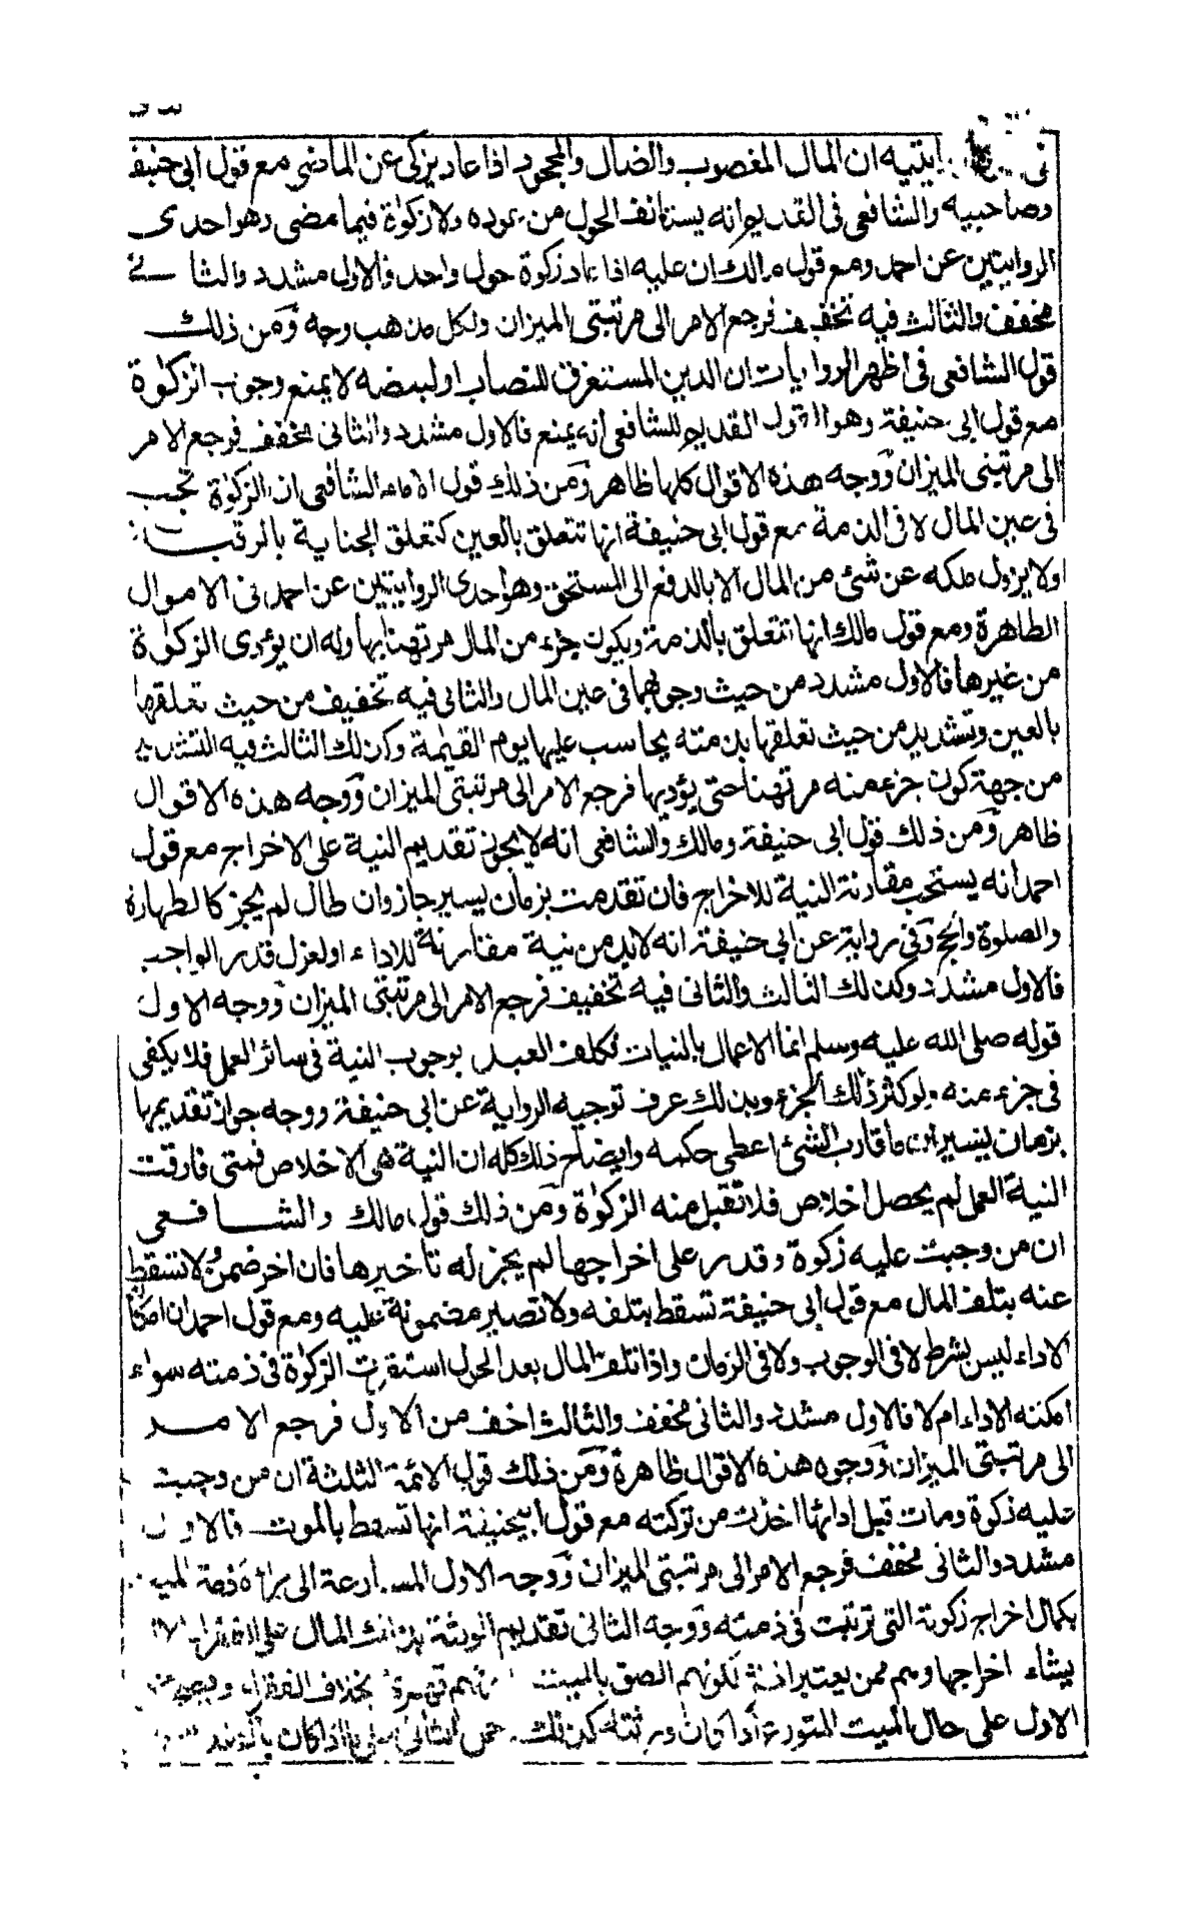 ايتيه ان المال المغصوب والضال والمجحود اذا عاد يزكى عن الماضى مع قول ابى حنيفة
وصاحبيه والشافعى فى القديم انه يستانف الحول من عوده ولا زكوٰة فيما مضى وهو احدى
الروايتين عن احمد ومع قول مالك ان عليه اذا عاد زكوة حول واحد فالاول مشدد والثانے
مخفف والثالث فيه تخفيف فرجع الامر الى مرتبتى الميزان ولكل مذهب وجه وَمن ذلك
قول الشافعى فى اظهر الروايات ان الدين المستغرق للنصاب او لبعضه لا يمنع وجوب الزكوٰة
مع قول ابى حنيفة وهو القول القديم للشافعى انه يمنع فالاول مشدد والثانى مخفف فرجع الامر
الى مرتبتى الميزان وَوجه هذه الاقوال كلها ظاهر وَمن ذلك قول الامام الشافعى ان الزكوٰة تجب
فى عين المال لا فى الذمة مع قول ابى حنيفة انها تتعلق بالعين كتعلق الجناية بالرقبة
ولا يزول ملكه عن شئ من المال الا بالدفع الى المستحق وهو احدى الروايتين عن احمد فى الاموال
الظاهرة ومع قول مالك انها تتعلق بالذمة ويكون جزء من المال مرتهنا بها وله ان يؤدى الزكوٰة
من غيرها فالاول مشدد من حيث وجوبها فى عين المال والثانى فيه تخفيف من حيث تعلقها
بالعين وتشديد من حيث تعلقها بذمته يحاسب عليها يوم القيٰمة وكذلك الثالث فيه التشديد
من جهة كون جزء منه مرتهنا حتى يؤديها فرجع الامر الى مرتبتى الميزان وَوجه هذه الاقوال
ظاهر وَمن ذلك قول ابى حنيفة ومالك والشافعى انه لا يجوز تقديم النية على الاخراج مع قول
احمد انه يستحب مقارنة النية للاخراج فان تقدمت بزمان يسير جاز وان طال لم يجز كالطهارة
والصلوة والحج وَفى رواية عن ابى حنيفة انه لا بد من نية مقارنة للاداء او لعزل قدر الواجب
فالاول مشدد وكذلك الثالث والثانى فيه تخفيف فرجع الامر الى مرتبتى الميزان وَوجه الاول
قوله صلى الله عليه وسلم انما الاعمال بالنيات فكلف العبد بوجوب النية فى سائر العمل فلا يكفى
فى جزء منه ولو كثر ذلك الجزء وبذلك عرف توجيه الرواية عن ابى حنيفة ووجه جواز تقديمها
بزمان يسير ان ما قارب الشئ اعطى حكمه وايضاح ذلك كله ان النية هى الاخلاص فمتى فارقت
النية العمل لم يحصل اخلاص فلا تقبل منه الزكوٰة وَمن ذلك قول مالك والشافعى
ان من وجبت عليه زكوة وقدر على اخراجها لم يجز له تاخيرها فان اخر ضمن ولا تسقط
عنه بتلف المال مع قول ابى حنيفة تسقط بتلفه ولا تصير مضمونة عليه ومع قول احمد ان امكان
الاداء ليس بشرط لا فى الوجوب ولا فى الزمان واذا تلف المال بعد الحول استقرت الزكوٰة فى ذمته سواء
امكنه الاداء ام لا فالاول مشدد والثانى مخفف والثالث اخف من الاول فرجع الامر
الى مرتبتى الميزان وَوجوه هذه الاقوال ظاهرة وَمن ذلك قول الائمة الثلثة ان من وجبت
عليه زكوة ومات قبل ادائها اخذت من تركته مع قول ابيحنيفة انها تسقط بالموت فالاول
مشدد والثانى مخفف فرجع الامر الى مرتبتى الميزان وَوجه الاول المسارعة الى براءة ذمة الميت
بكمال اخراج زكوته التى ترتبت فى ذمته وَوجه الثانى تقديم الورثة بذلك المال على الفقراء الا
يشاء اخراجها وهم ممن يعتبر اذنه لكونهم الصق بالميت بخلاف الفقراء
الاول على حال الميت المتورع اذا كان ورثته كذلك الثانى على ما اذا كان بالضد